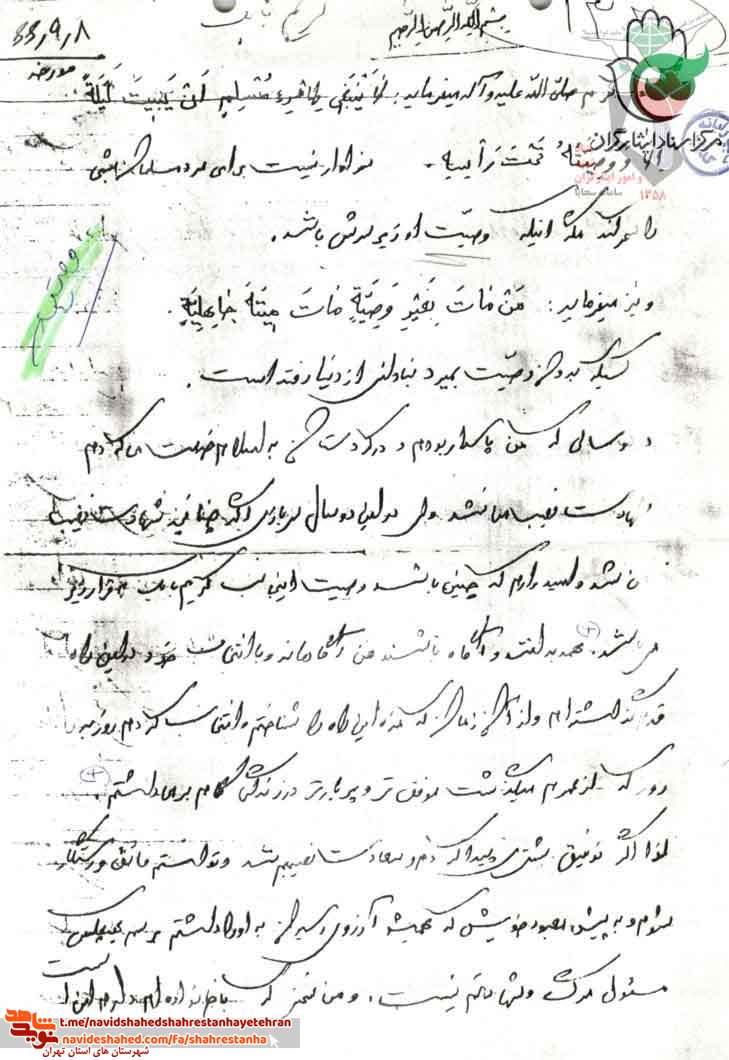 بسم الله الرحمن الرحیم
۶۶,۹,۸
مورخه
صلی الله علیه و آله میفرماید: لا ینبغی لامرء مسلم ان یبیت لیلة
الا و وصیته تحت رأسه - سزاوار نیست برای مرد مسلمان شبی
را سر کند مگر اینکه وصیت او زیر سرش باشد.
و نیز میفرماید: من مات بغیر وصیة مات میتة جاهلیة.
کسیکه بدون وصیت بمیرد بنادانی از دنیا رفته است.
سالی که من پاسدار بودم و در کردستان به اسلام خدمت می کردم
شهادت نصیب من نشد ولی در این دو سال سربازی اگر چنانچه شهادت نصیب
من شد و امیدوارم که چنین باشد وصیت اینجانب کریم بقرار زیر
می باشد. همه بدانند و آگاه باشند من آگاهانه و با انتخاب خود در این راه
قدم گذاشته ام و از آن زمان که این راه را شناختم و انتخاب کردم روز به
روز که از عمرم میگذشت موفق تر و پربارتر در زندگی گام برمیداشتم.
لذا اگر توفیق بیشتری پیدا کردم و سعادت نصیبم شد و توانستم
شوم و به پیش معبود خویش که همیشه آرزوی رسیدن به او را داشتم برسم هیچکس
مسئول مرگ و قتل من نیست. و من که
مرکز اسناد ایثارگران
و امور ایثارگران
سامانه سجایا
۱۳۵۸
t.me/navidshahedshahrestanhayetehran
navideshahed.com/fa/shahrestanha
شهرستان های استان تهران